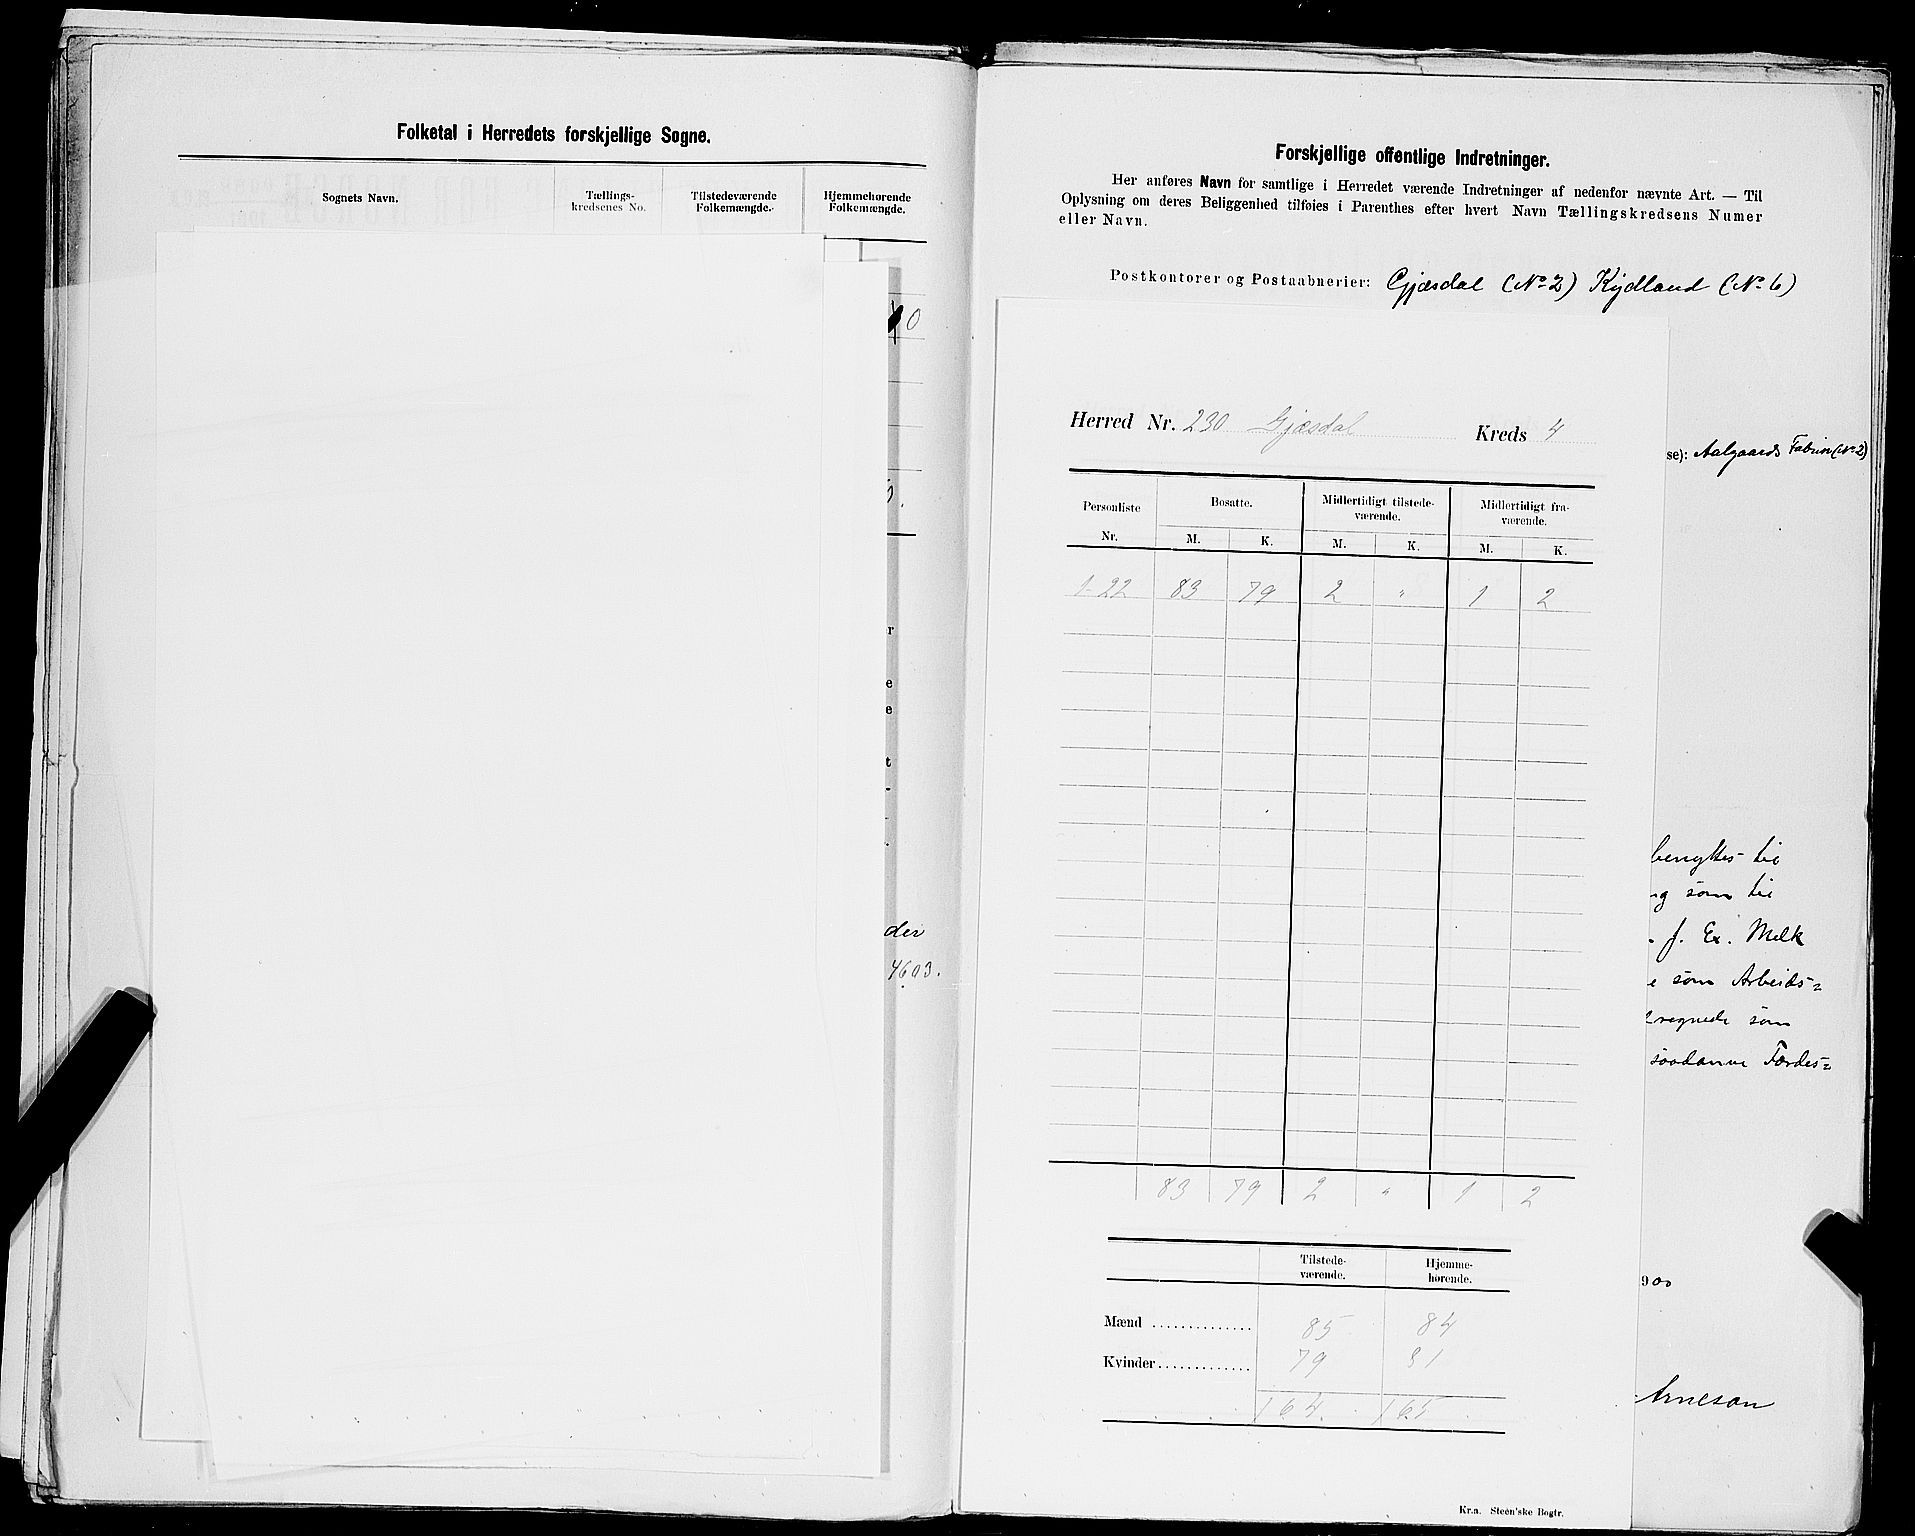 Folketal i Herredets forskjellige Sogne.
Sognets Navn.
Tællings-
kredsenes No.
Tilstedeværende
Folkemængde.
Hjemmehørende
Folkemængde.
0
0.
r
e
e
t
-
der
4603.
Forskjellige offentlige Indretninger.
Her anføres Navn for samtlige i Herredet værende Indretninger af nedenfor nævnte Art. — Til
Oplysning om deres Beliggenhed tilføies i Parenthes efter hvert Navn Tællingskredsens Numer
eller Navn.
Postkontorer og Postaabnerier: Gjæsdal (No 2) Kydland (No 6)
Herred Nr. 230 Gjæsdal Kreds 4
se): Aalgaards Fabrik (No 2)
Personliste
Nr.
Bosatte.
M. K.
Midlertidigt tilstede-
værende.
M. K.
Midlertidigt fra-
værende.
M. K.
1-22 83 79 2 " 1 2
83 79 2 " 1 2
Tilstede-
værende.
Hjemme-
hørende.
Mænd .............. 85 84
Kvinder............. 79 81
164. 165
benyttes til
ng som til
f. Ex. Melk
e som Arbeids=
regnede som
saadanne Færdes=
900
Arneson
Kr.a. Steen'ske Bogtr.